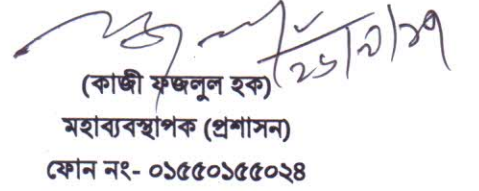 ২৬/৯/১৭
(কাজী ফজলুল হক)
মহাব্যবস্থাপক (প্রশাসন)
ফোন নং- ০১৫৫০১৫৫০২৪